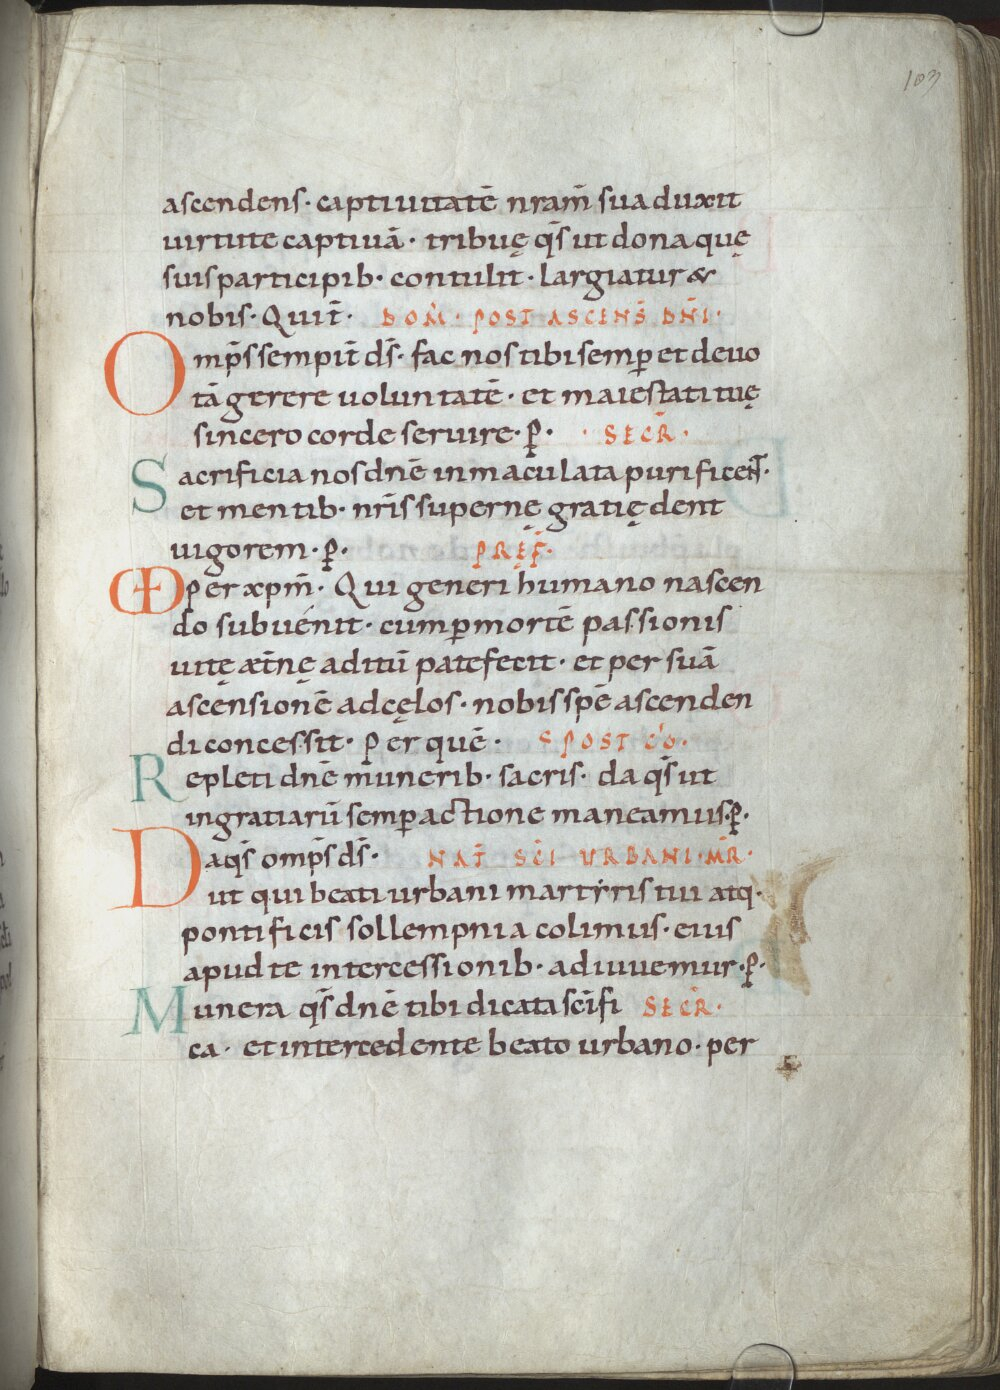 103
ascendens· captiuitatē nram̄ sua duxit
uirtute captiuā· tribuę q̄s ut dona quę
suis participib· contulit· largiatur &
nobis· Qui t̄· DOM̄· POST ASCENS̄ DN̄I·
Omp̄s sempit̄ d̄s· fac nos tibi semꝑ et deuo
tā gerere uoluntatē· et maiestati tuę
sincero corde seruire· ꝑ· · SECR̄·
Sacrificia nos dnē inmaculata purificent·
et mentib· nr̄is supernę gratię dent
uigorem· ꝑ· PREF̄·
per xpm̄· Qui generi humano nascen
do subuenit· cum ꝑ mortē passionis
uitę æt̄nę aditū patefecit· et per suā
ascensionē ad cęlos· nobis spē ascenden
di concessit· Per quē· POST CŌ·
Repleti dnē munerib· sacris· da q̄s ut
in gratiarū semꝑ actione maneamus· ꝑ·
Da q̄s omp̄s d̄s· NAT̄ SC̄I URBANI· MR̄·
ut qui beati urbani martẏris tui atq·
pontificis sollempnia colimus· eius
apud te intercessionib· adiuuemur· ꝑ·
Munera q̄s dnē tibi dicata sc̄ifi SECR̄·
ca· et intercedente beato urbano· per